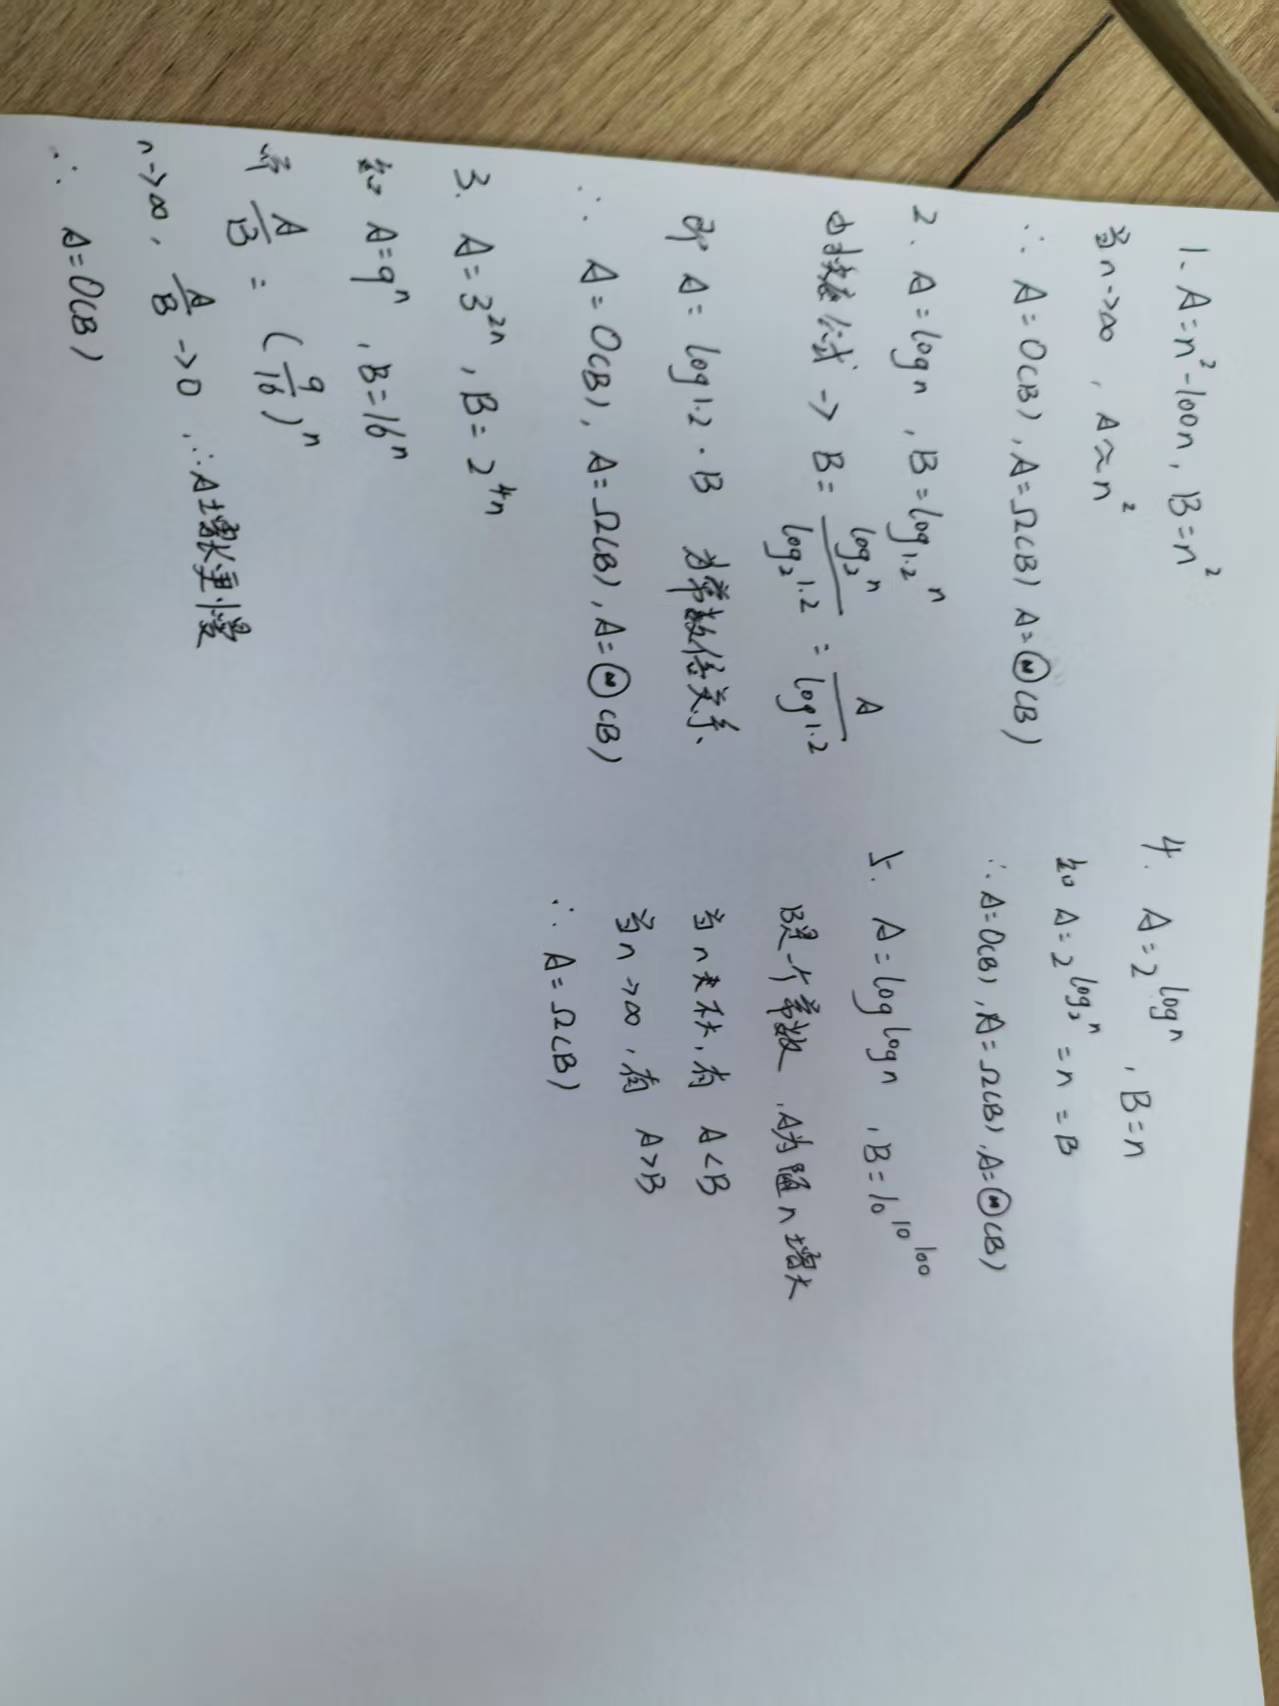 1. A=n²-100n, B=n²
当n→∞, A≈n²
∴ A=O(B), A=Ω(B) A=Θ(B)
2. A=logn, B=log₁.₂ⁿ
由换底公式 → B= log₂ⁿ / log₂1.2 = A / log1.2
即 A= log1.2 · B 为常数倍关系、
∴ A=O(B), A=Ω(B), A=Θ(B)
3. A=3²ⁿ, B=2⁴ⁿ
知 A=9ⁿ, B=16ⁿ
A/B = (9/16)ⁿ
n→∞, A/B →0, ∴A增长更慢
∴ A=O(B)
4. A=2^logn, B=n
知 A=2^log₂ⁿ =n =B
∴ A=O(B), A=Ω(B), A=Θ(B)
5. A=log logn, B=10^10^100
B是一个常数, A为随n增大
当n 不大, 有 A<B
当n→∞, 有 A>B
∴ A=Ω(B)